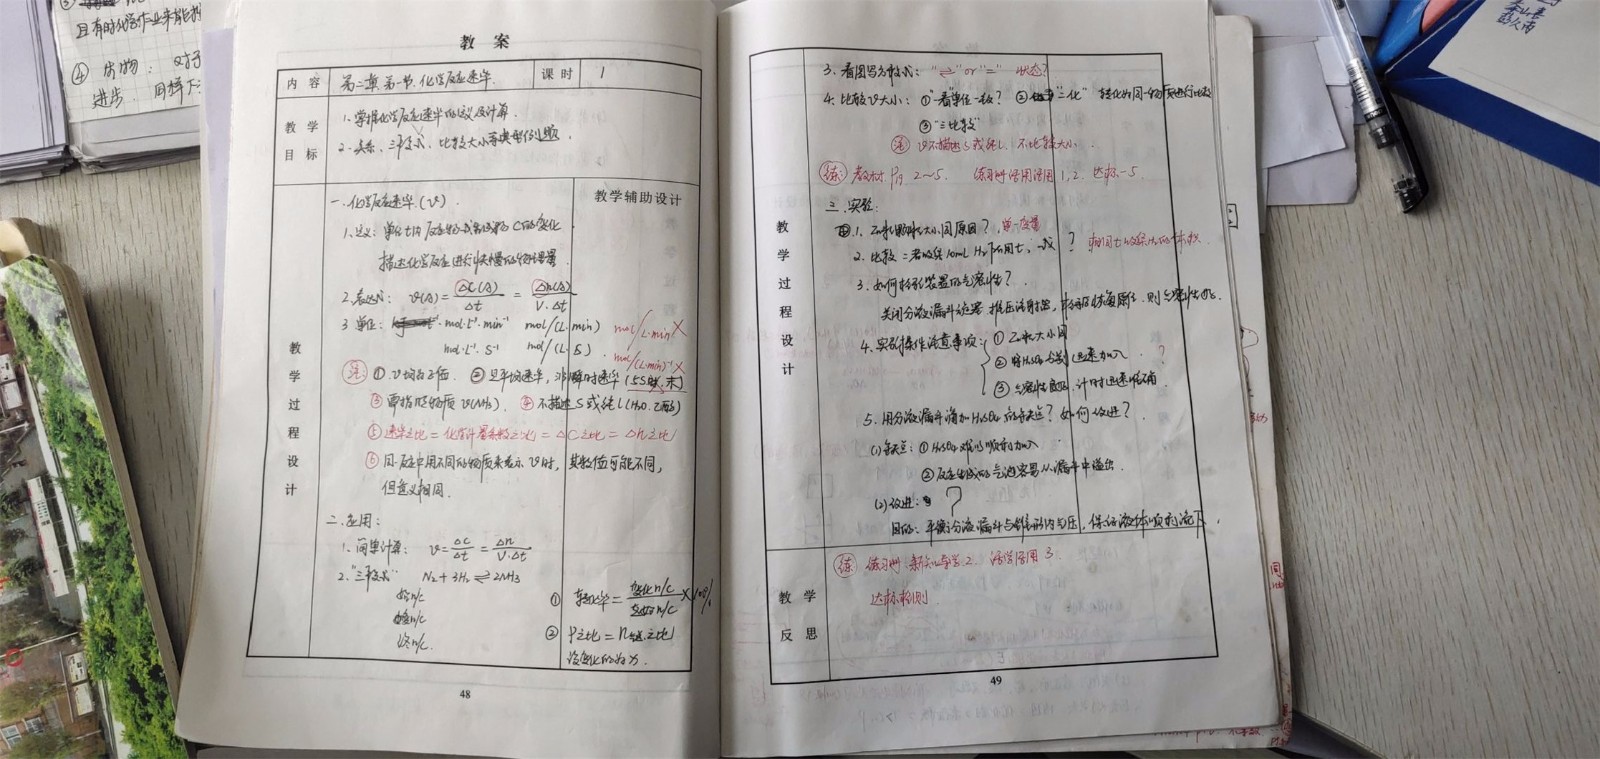 且有时化学作业未能
④
进步.
教 案
内 容 第二章 第一节 化学反应速率. 课 时 1
教 学 目 标
1.掌握化学反应速率的定义及计算.
2.关系、三段式、比较大小等典型的习题.
教 学 过 程 设 计
教学辅助设计
一.化学反应速率.(v).
1.定义: 单位t内 反应物或生成物 C的变化
描述化学反应进行快慢的物理量.
2.表达式: v(A)= Δc(A)/Δt = Δn(A)/V·Δt
3 单位: mol·L⁻¹·min⁻¹ mol/(L·min) mol/L·min ×
mol·L⁻¹·S⁻¹ mol/(L·S). mol/(L·min)⁻¹ ×
注: ①.v均为正值. ②是平均速率,非瞬时速率(5S时、末)
③需指明物质 v(NH₃). ④不描述S或纯L(H₂O.乙醇)
⑤速率之比=化学计量系数之比=ΔC之比=Δn之比
⑥同一反应中用不同的物质来表示v时,其数值可能不同,
但意义相同.
二.应用:
1.简单计算: v= Δc/Δt = Δn/V·Δt
2."三段式" N₂+3H₂⇌2NH₃
始n/c
n/c
终n/c.
① 转化率= 变化n/c / 起始n/c ×100%
② P之比=n之比
设变化的为x.
48
3.看图写方程式: "⇌"or"=" 状态?
4.比较v大小: ①"一看"单位一致? ②"二化" 转化为同一物质进行比较
③"三比较"
注 v不描述S或纯L、不比较大小.
练: 教材P19. 2~5. 练习册 活用1,2. 达标~5.
教 学 过 程 设 计
三.实验:
1.Zn粒大小同原因? 单一变量
2.比较:二者收集10mL H₂所用t、 ? 相同t收集H₂的体积.
3.如何检验装置的气密性?
关闭分液漏斗旋塞.推压注射器,恢复原位.则气密性好.
4.实验操作注意事项: ①Zn粒大小同
② 迅速加入.?
③气密性良好.计时迅速准确.
5.用分液漏斗滴加H₂SO₄的缺点?如何改进?
(1)缺点: ①H₂SO₄难以顺利加入
②反应生成的气泡容易从漏斗中溢出.
(2)改进: ?
目的: 平衡分液漏斗与锥形瓶内气压,保证液体顺利流下.
教 学 反 思
练 练习册:新知导学2. 活学活用3.
达标检测
49